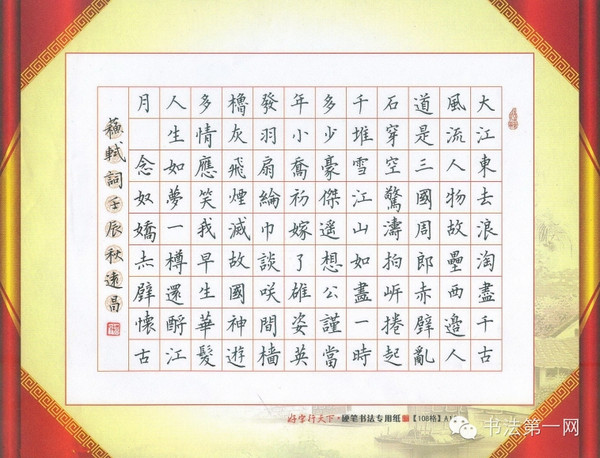 大江東去浪淘盡千古
風流人物故壘西邊人
道是三國周郎赤壁亂
石穿空驚濤拍岍捲起
千堆雪江山如畫一時
多少豪傑遥想公謹當
年小喬初嫁了雄姿英
發羽扇綸巾談咲間檣
櫓灰飛煙滅故國神遊
多情應笑我早生華髮
人生如夢一樽還酹江
月 念奴嬌赤壁懷古
蘇軾詞壬辰秋遠昌
好字行天下·硬笔书法专用纸【108格】
书法第一网